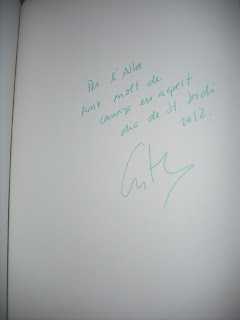 Per l'Alba
Amb molt de
carinyo en aquest
dia de St. Jordi
2012.